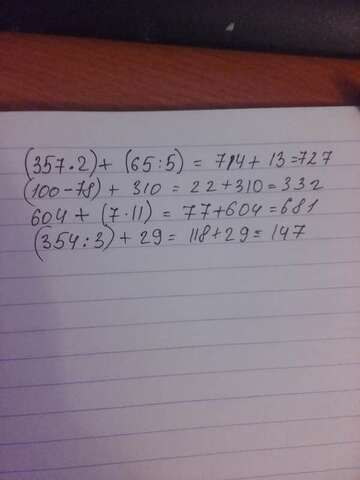 (357·2)+ (65:5) = 714+ 13=727
(100-78) + 310 = 22+310=332
604 + (7·11) = 77+604=681
(354:3) + 29= 118+29= 147